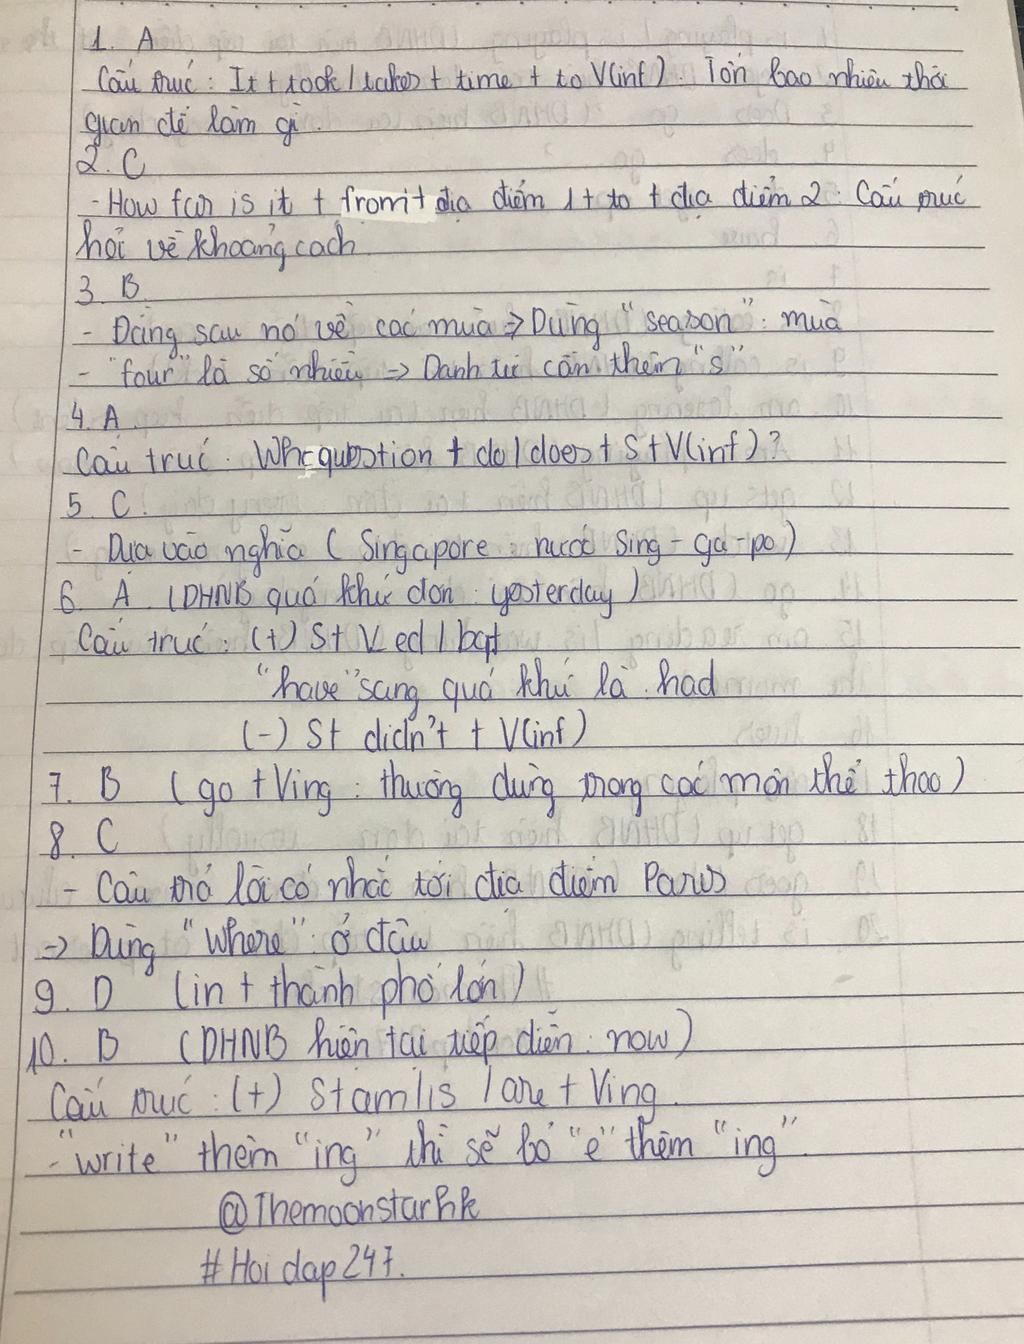 1. A
Cấu trúc: It + took / takes + time + to V(inf). Tốn bao nhiêu thời
gian để làm gì.
2. C
- How far is it + from + địa điểm 1 + to + địa điểm 2: Cấu trúc
hỏi về khoảng cách
3. B
- Đằng sau nó về các mùa => Dùng "season": mùa
- "four" là số nhiều => Danh từ cần thêm "s"
4. A
Cấu trúc: Wh-question + do / does + S + V(inf)?
5. C
- Dựa vào nghĩa (Singapore: nước Sing-ga-po)
6. A (DHNB quá khứ đơn: yesterday)
Cấu trúc: (+) S + V ed / bqt
"have" sang quá khứ là had
(-) S + didn't + V(inf)
7. B (go + Ving: thường dùng trong các môn thể thao)
8. C
- Câu trả lời có nhắc tới địa điểm Paris
=> Dùng "Where": ở đâu
9. D (in + thành phố lớn)
10. B (DHNB hiện tại tiếp diễn: now)
Cấu trúc: (+) S + am / is / are + Ving.
- "write" thêm "ing" thì sẽ bỏ "e" thêm "ing".
@Themoonstarhk
#Hoidap247.